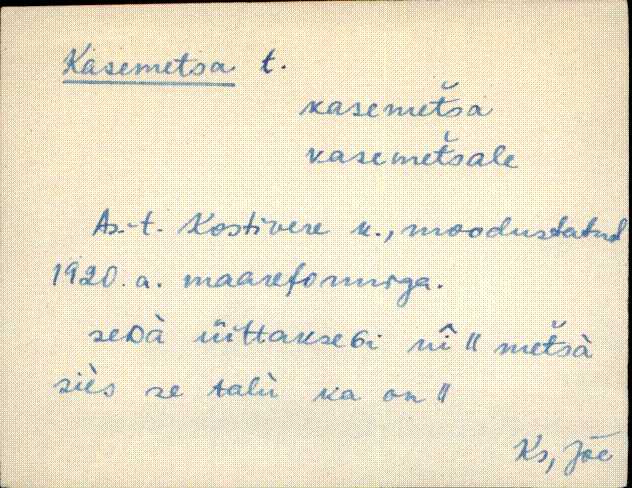 Kasemetsa t.
kasemet̆sa
kasemet̆sale
As.-t. Kostivere k., moodustatud
1920. a. maareformiga.
seDà üittakseGi nî " met̆sà
siès se talù ka on "
Ks, Jõe